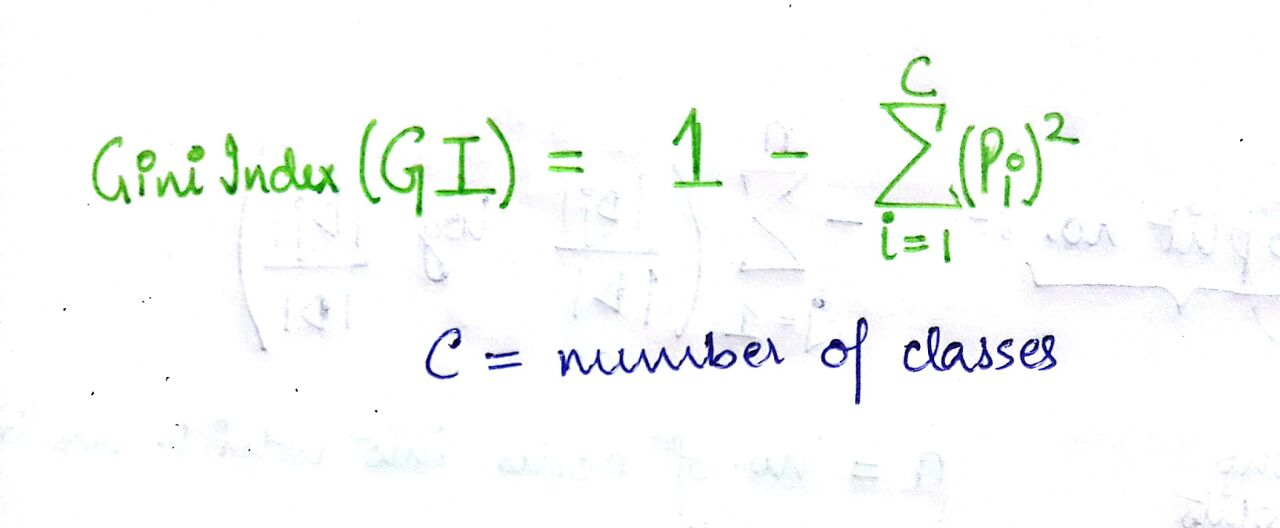 Gini Index (GI) = 1 - \sum_{i=1}^{C} (P_i)^2
C = number of classes